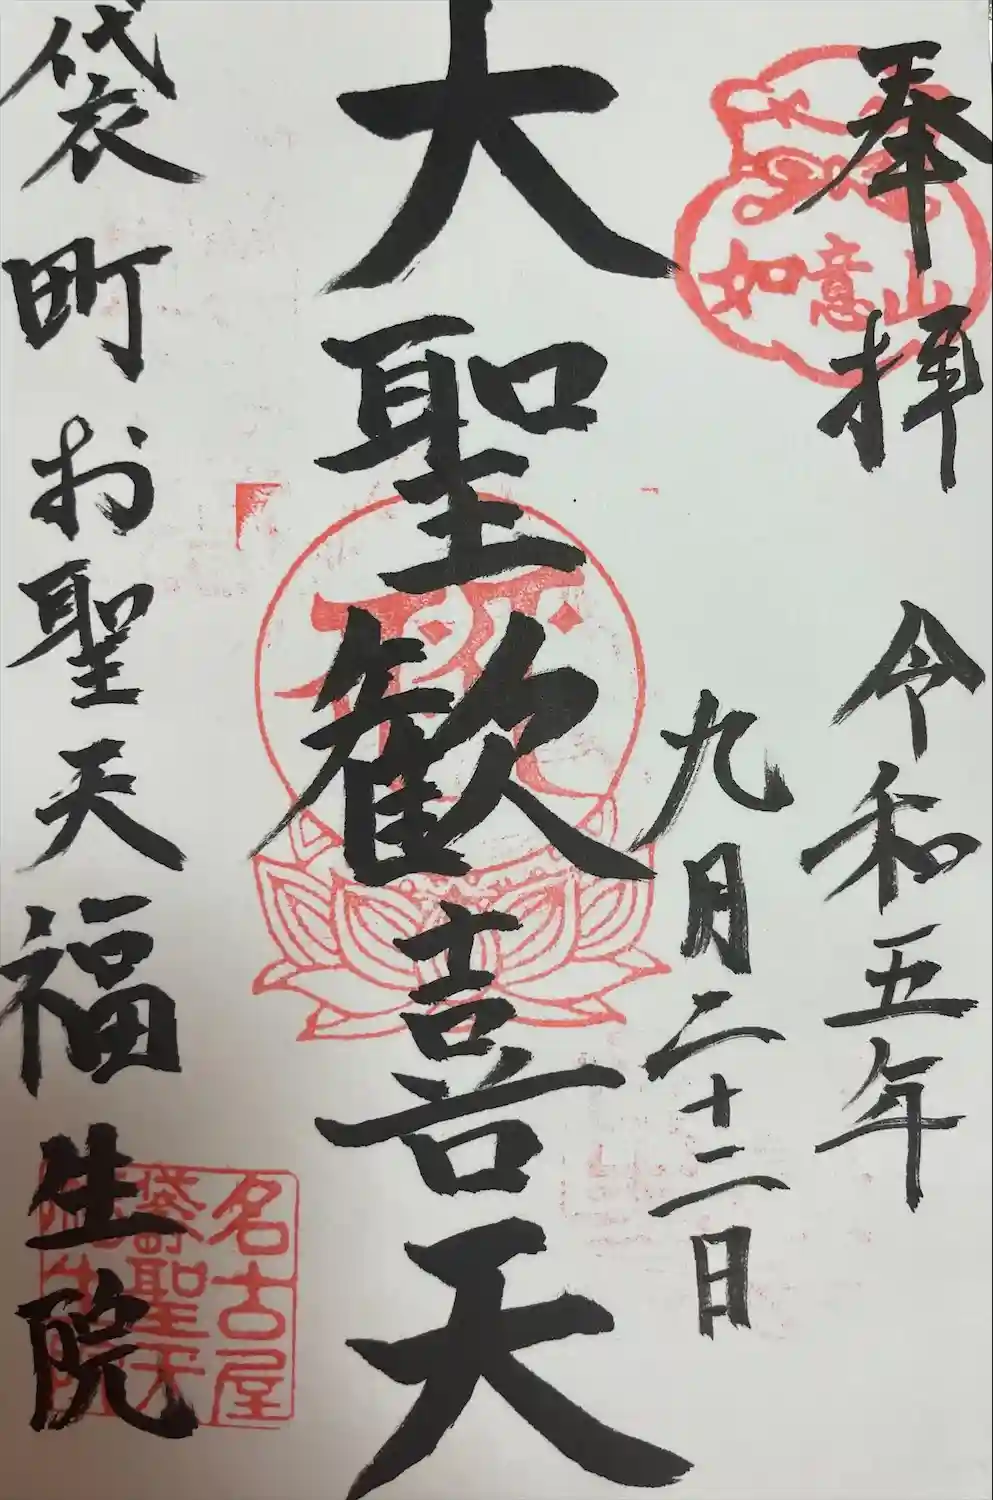 奉拝
如意山
令和五年
九月二十二日
大聖歓喜天
袋町お聖天福生院
名古屋
袋町聖天
福生院